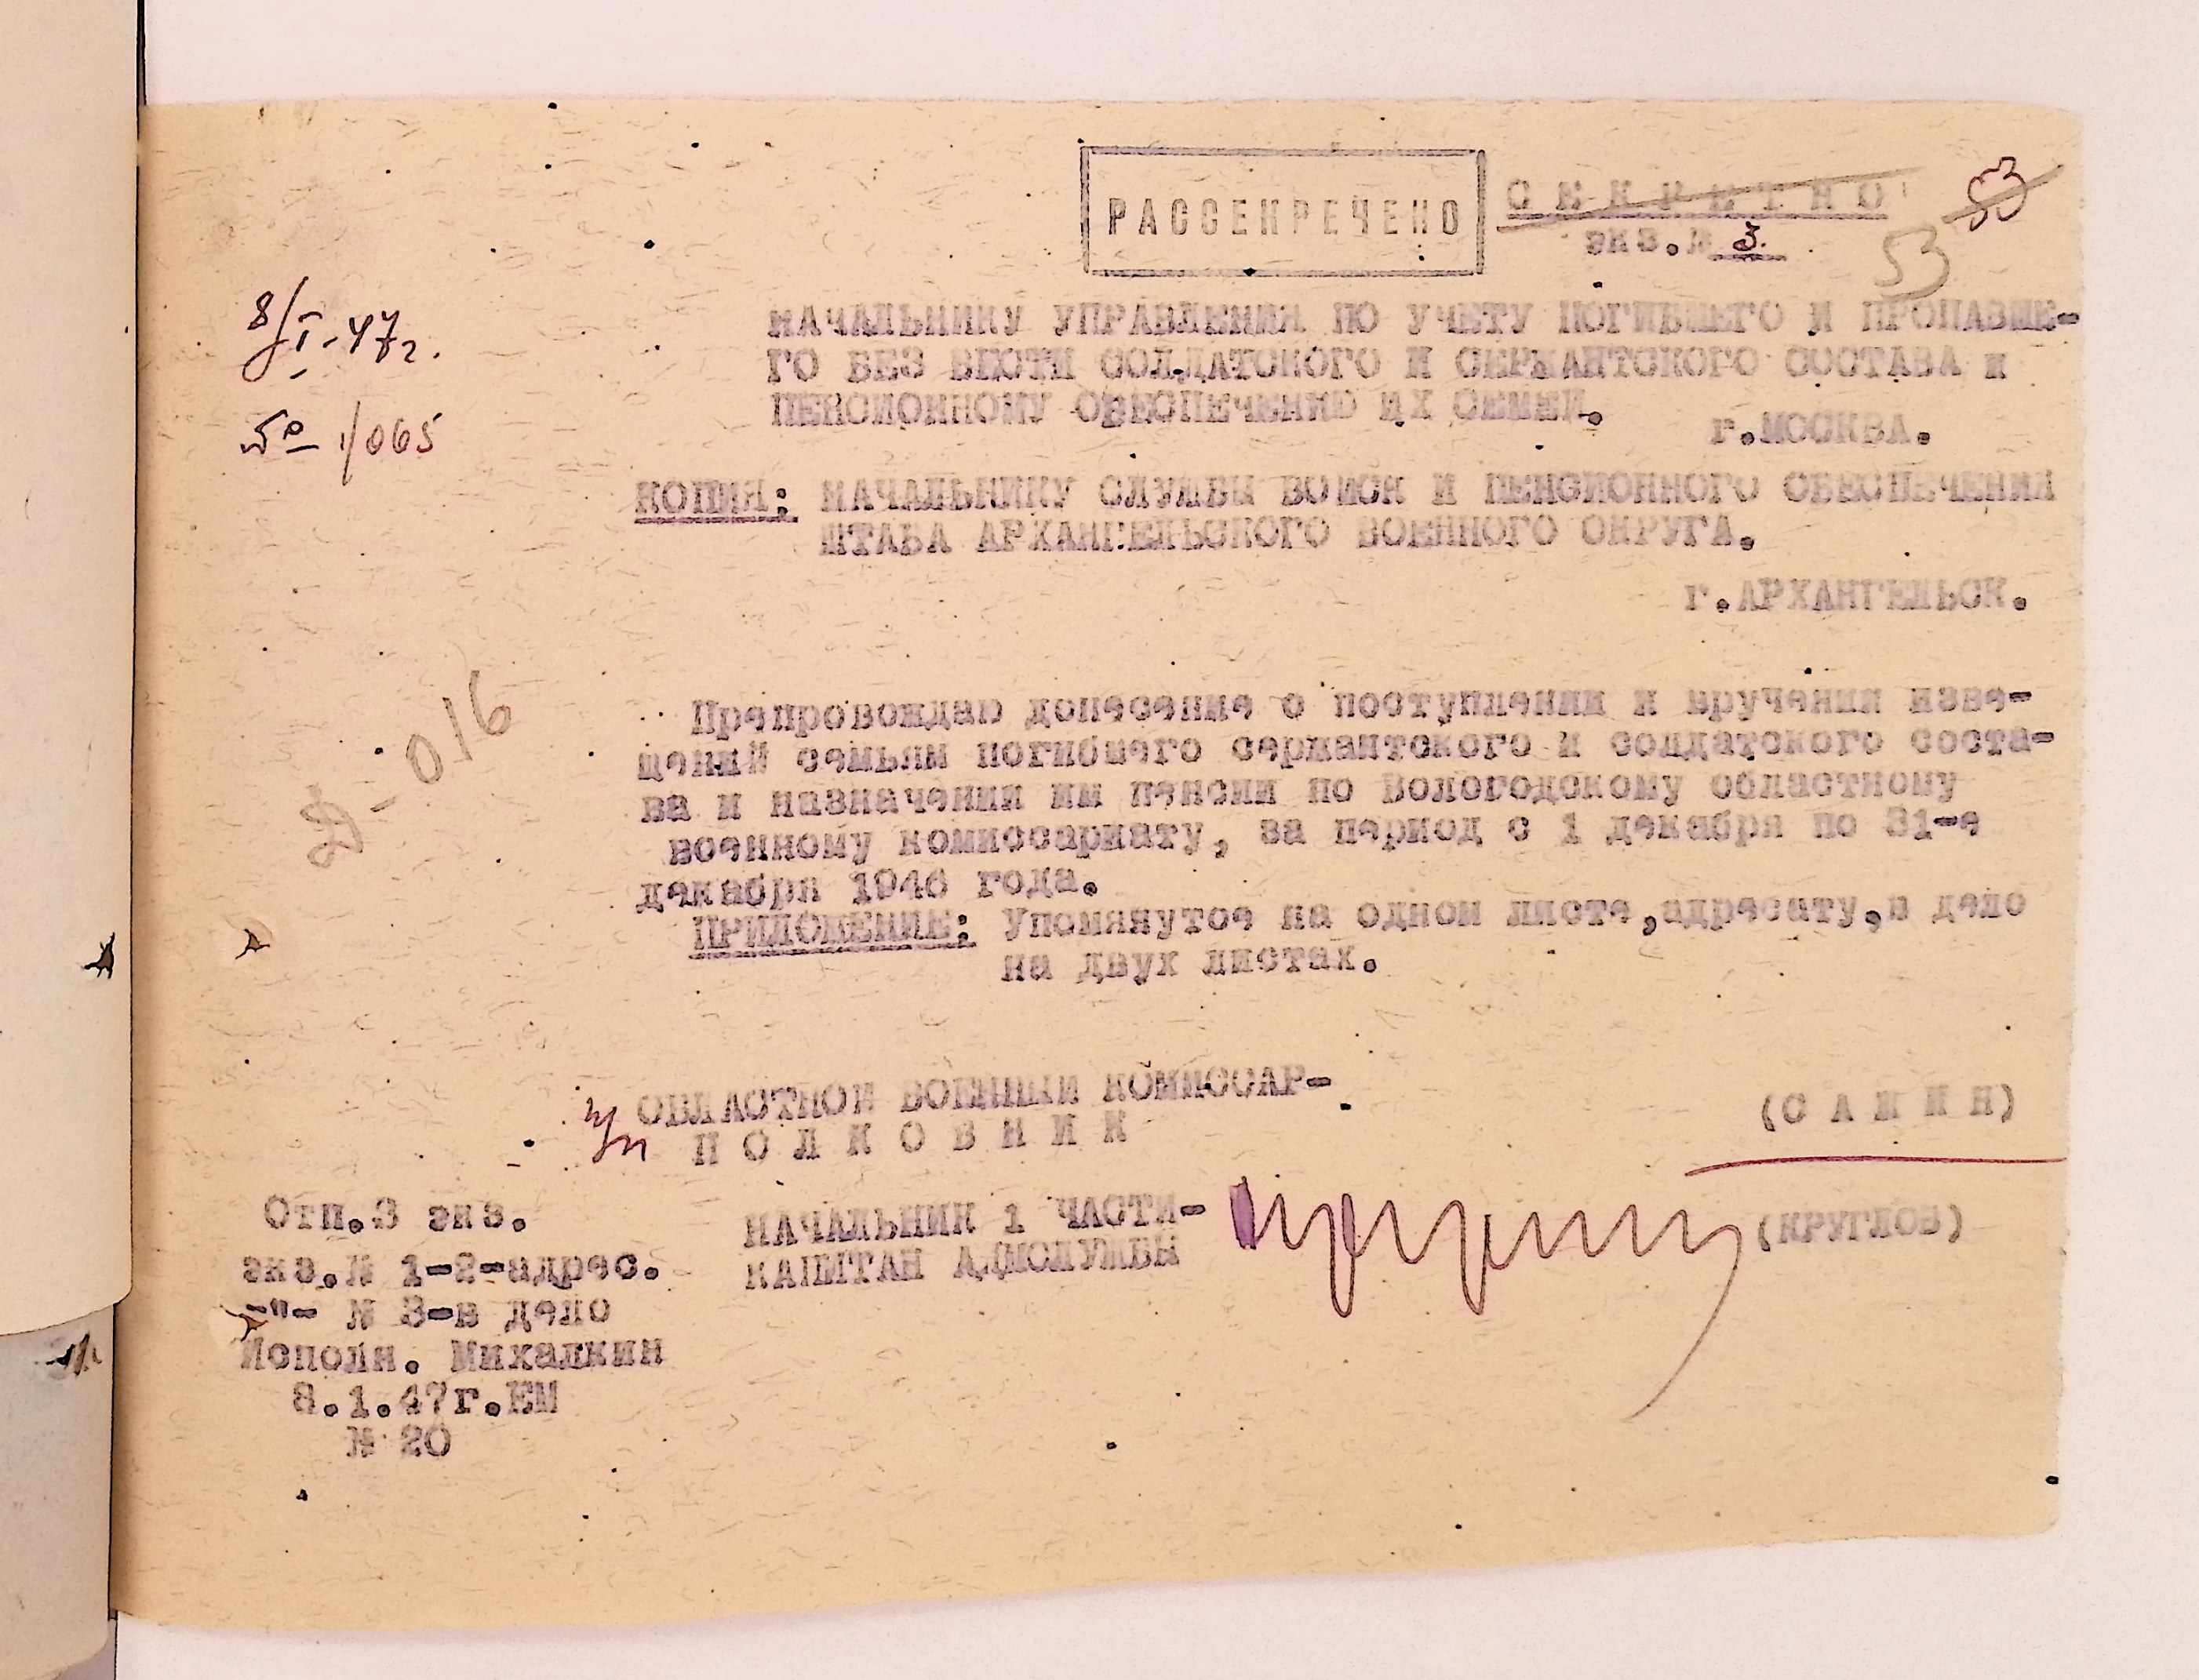 РАССЕКРЕЧЕНО
СЕКРЕТНО
экз.№ 3.
53
53
8/I-47г.
№ 1/065
НАЧАЛЬНИКУ УПРАВЛЕНИЯ ПО УЧЕТУ ПОГИБШЕГО И ПРОПАВШЕ-
ГО БЕЗ ВЕСТИ СОЛДАТСКОГО И СЕРЖАНТСКОГО СОСТАВА И
ПЕНСИОННОМУ ОБЕСПЕЧЕНИЮ ИХ СЕМЕЙ.
г.МОСКВА.
КОПИЯ: НАЧАЛЬНИКУ СЛУЖБЫ ВОЙСК И ПЕНСИОННОГО ОБЕСПЕЧЕНИЯ
ШТАБА АРХАНГЕЛЬСКОГО ВОЕННОГО ОКРУГА.
г.АРХАНГЕЛЬСК.
Д-016
Препровождаю донесение о поступлении и вручении изве-
щений семьям погибшего сержантского и солдатского соста-
ва и назначении им пенсии по Вологодскому областному
военному комиссариату, за период с 1 декабря по 31-е
декабря 1946 года.
ПРИЛОЖЕНИЕ: Упомянутое на одном листе,адресату,в дело
на двух листах.
ОБЛАСТНОЙ ВОЕННЫЙ КОМИССАР-
ПОЛКОВНИК
(САНИН)
НАЧАЛЬНИК 1 ЧАСТИ-
КАПИТАН АДМСЛУЖБЫ
(КРУГЛОВ)
Отп.3 экз.
экз.№ 1-2-адрес.
-"- № 3-в дело
Исполн. Михалкин
8.1.47г.ЕМ
№ 20